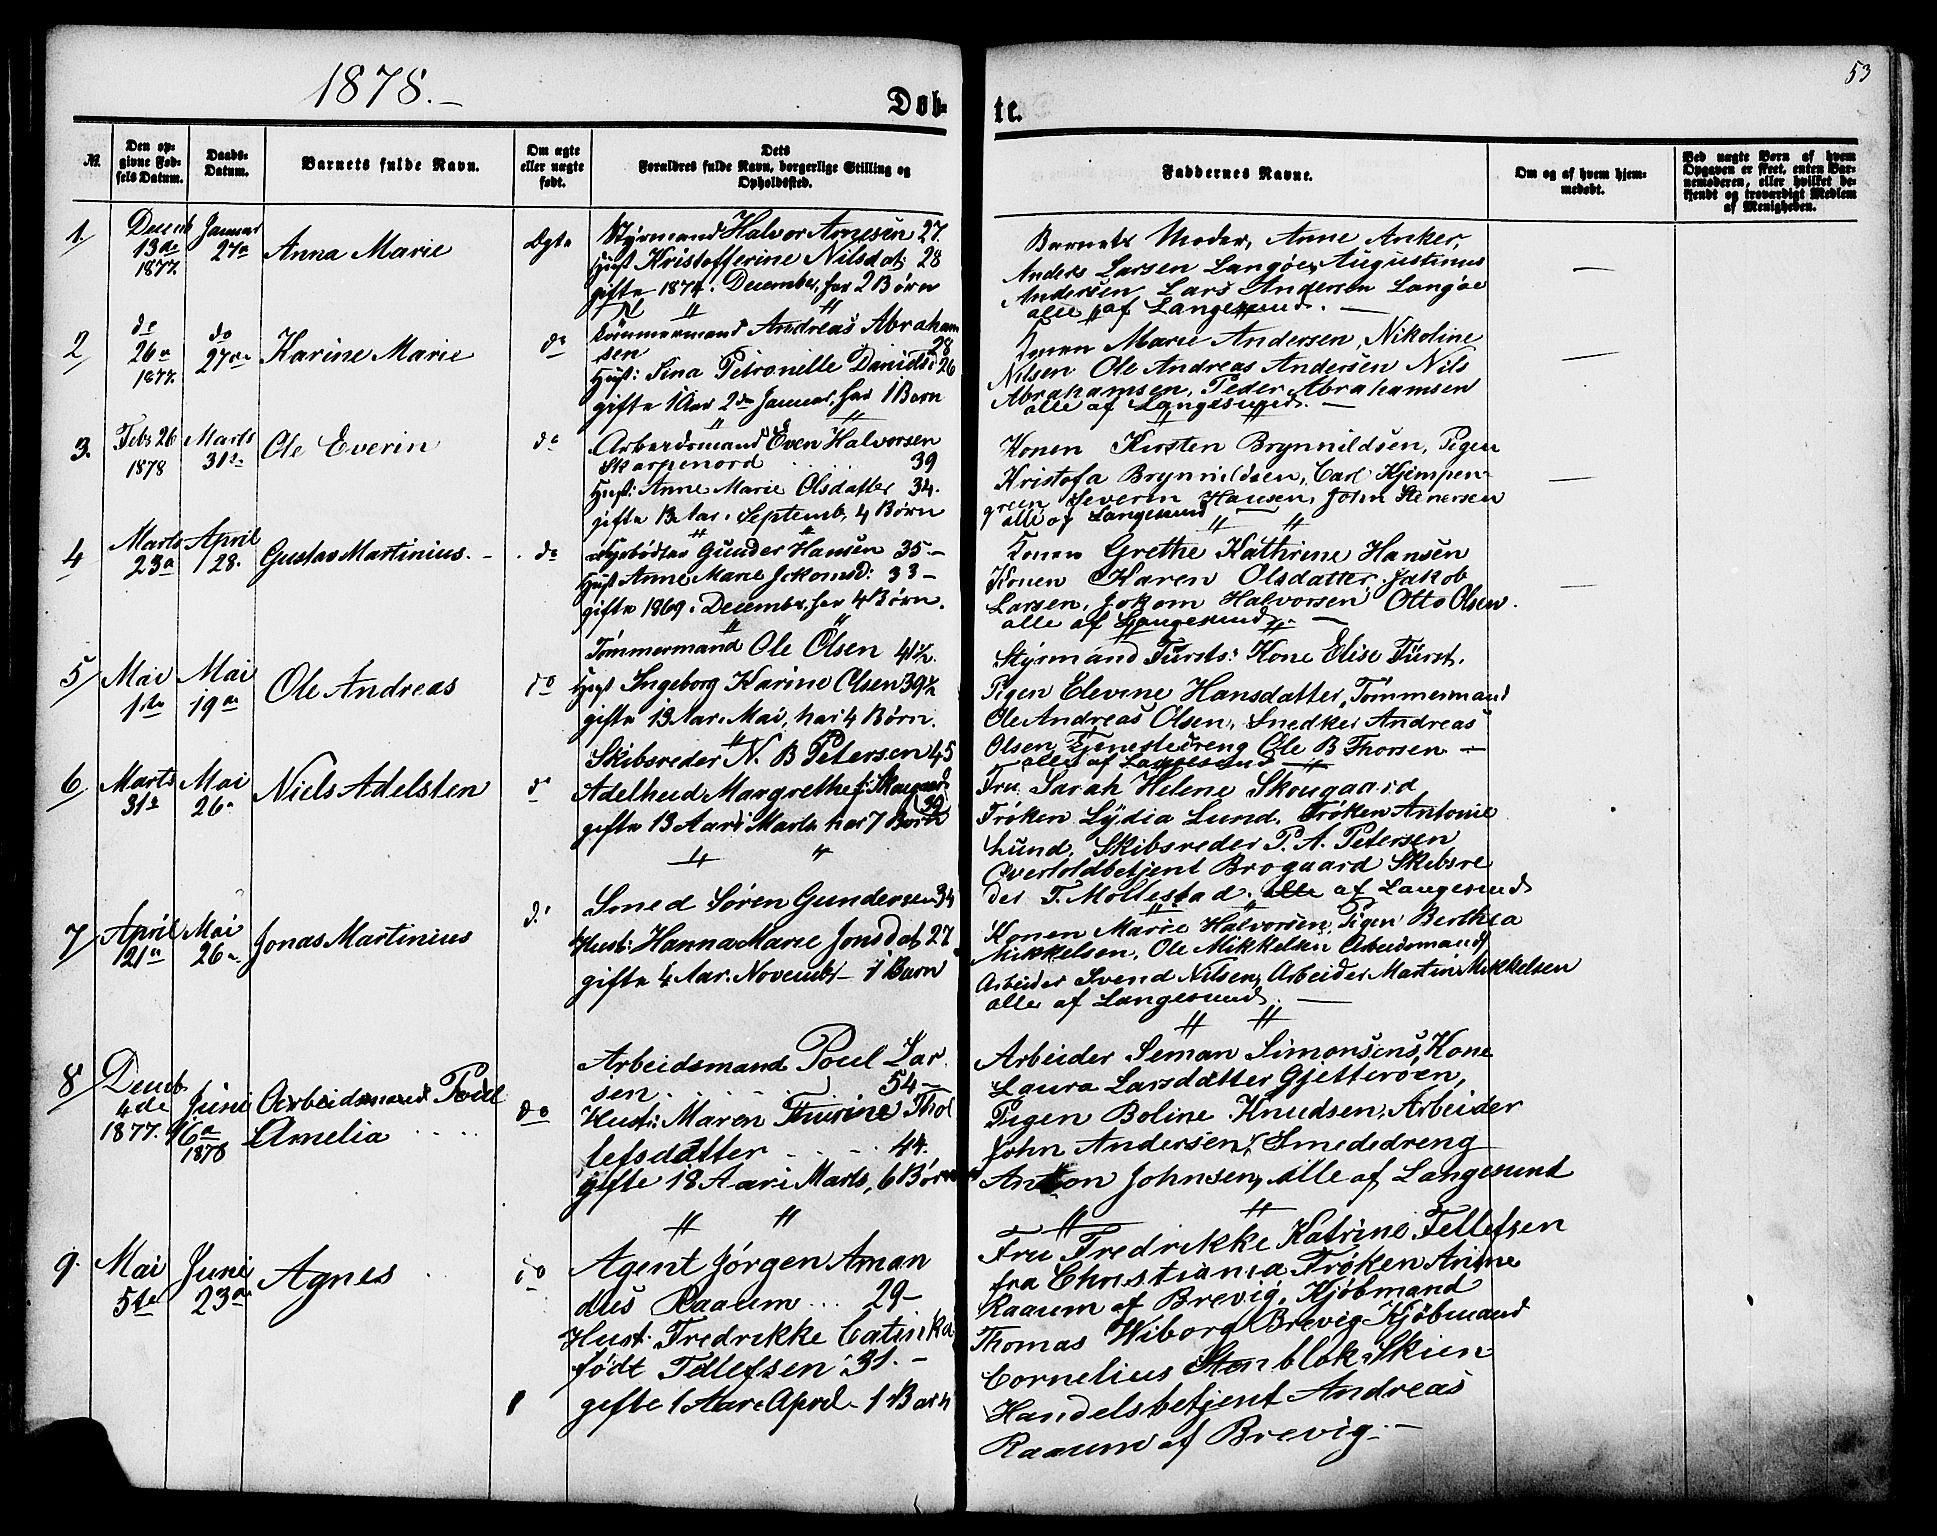 1878.
53
Døb-
te.
№
Den op-
givne Fød-
sels Datum.
Daabs-
Datum.
Barnets fulde Navn.
Om ægte
eller uægte
født.
Dets
Forældres fulde Navn, borgerlige Stilling og
Opholdssted.
Faddernes Navne.
Om og af hvem hjem-
medøbt.
Ved uægte Børn af hvem
Opgaven er skeet, enten Bar-
nemoderen, eller hvilket be-
kjendt og troværdigt Medlem
af Menigheden.
1.
Decemb
13de
1877.
Januar
27de
Anna Marie
Ægte
Styrmand Halvor Arnesen 27.
Hust Kristofferine Nilsdat: 28
gifte 1874. December, har 2 Børn
Barnets Moder, Anne Anker,
Anders Larsen Langøe, Augustinus
Andersen Lars Andersen Langøe
alle af Langesund. —
2
do
26de
1877.
do
27de
Karine Marie
do
Tømmermand Andreas Abraham
sen 28
Hust: Sina Petronelle Daniels: 26
gifte 1 Aar 2den Januar, har 1 Barn
Konen Marie Andersen, Nikoline
Nilsen Ole Andreas Andersen Nils
Abrahamsen, Peder Abrahamsen
alle af Langesund. —
3.
Feb: 26
1878
Marts
31te
Ole Everin
do
Arbeidsmand Even Halvorsen
Skarpenord 39
Hust: Anne Marie Olsdatter 34.
gifte 13 Aar i Septemb, 4 Børn
Konen Kirsten Brynnildsen, Pigen
Kristofa Brynnildsen, Carl Kjempen-
green Severin Hansen, John Stenersen
alle af Langesund —
4
Marts
23de
April
28.
Gustav Martinius. -
do
Gunder Hansen 35. —
Hust Anne Marie Jokomsd: 33 —
gifte 1869 i December, har 4 Børn.
Konen Grethe Kathrine Hansen
Konen Karen Olsdatter, Jakob
Larsen, Jokom Halvorsen, Otto Olsen.
alle af Langesund. —
5
Mai
1ste
Mai
19de
Ole Andreas
do
Tømmermand Ole Olsen 41½.
Hust Ingeborg Karine Olsen 39½
gifte 13 Aar i Mai, har 4 Børn.
Styrmand Fürsts: Kone Elise Fürst,
Pigen Elevine Hansdatter, Tømmermand
Ole Andreas Olsen, Snedker Andreas
Olsen Tjenestedreng Ole B Thorsen —
alle af Langesund
6
Marts
31te
Mai
26de
Niels Adelsten
do
Skibsreder N. B Petersen 45
Adelheid Margrethe f: Skougaard
(39
gifte 13 Aar i Marts har 7 Børn
Fru Sarah Helene Skougaard
Frøken Lydia Lund, Frøken Antonie
Lund, Skibsreder P. A. Petersen
Overtoldbetjent Brogaard Skibsre
der T. Møllestad, alle af Langesund
7
April
21de
Mai
26de
Jonas Martinius
do
Smed Søren Gundersen 34
Hust: Hanna Marie Jonsdat 27
gifte 4 Aar i Novemb — 1 Barn
Konen Marie Halvorsen, Pigen Berthea
Mikkelsen, Ole Mikkelsen Arbeidsmand
Arbeider Svend Nilsen, Arbeider Martin Mikkelsen
alle af Langesund. —
8
Decemb
4de
1877.
Juni
16de
1878
Arbeidsmand Poul
Amelia
do
Arbeidsmand Poul Lar
sen 54 —
Hust: Maren Thurine Thol
lefsdatter 44.
gifte 18 Aar i Marts, 6 Børn
Arbeider Seman Simonsens Kone
Laura Larsdatter Gjetterøen,
Pigen Boline Knudsen, Arbeider
John Andersen, Smededreng
Anton Johnsen, alle af Langesund
9.
Mai
5te
Juni
23de
Agnes
do
Agent Jørgen Aman
dus Raaum ... 29 —
Hust: Fredrikke Catinka
født Tellefsen 31. —
gifte 1 Aar i April - 1 Barn
Fru Fredrikke Katrine Tellefsen
fra Christiania Frøken Anine
Raaum af Brevig, Kjøbmand
Thomas Wiborg Brevig Kjøbmand
Cornelius Stenblok, Skien
Handelsbetjent Andreas
Raaum af Brevig. —